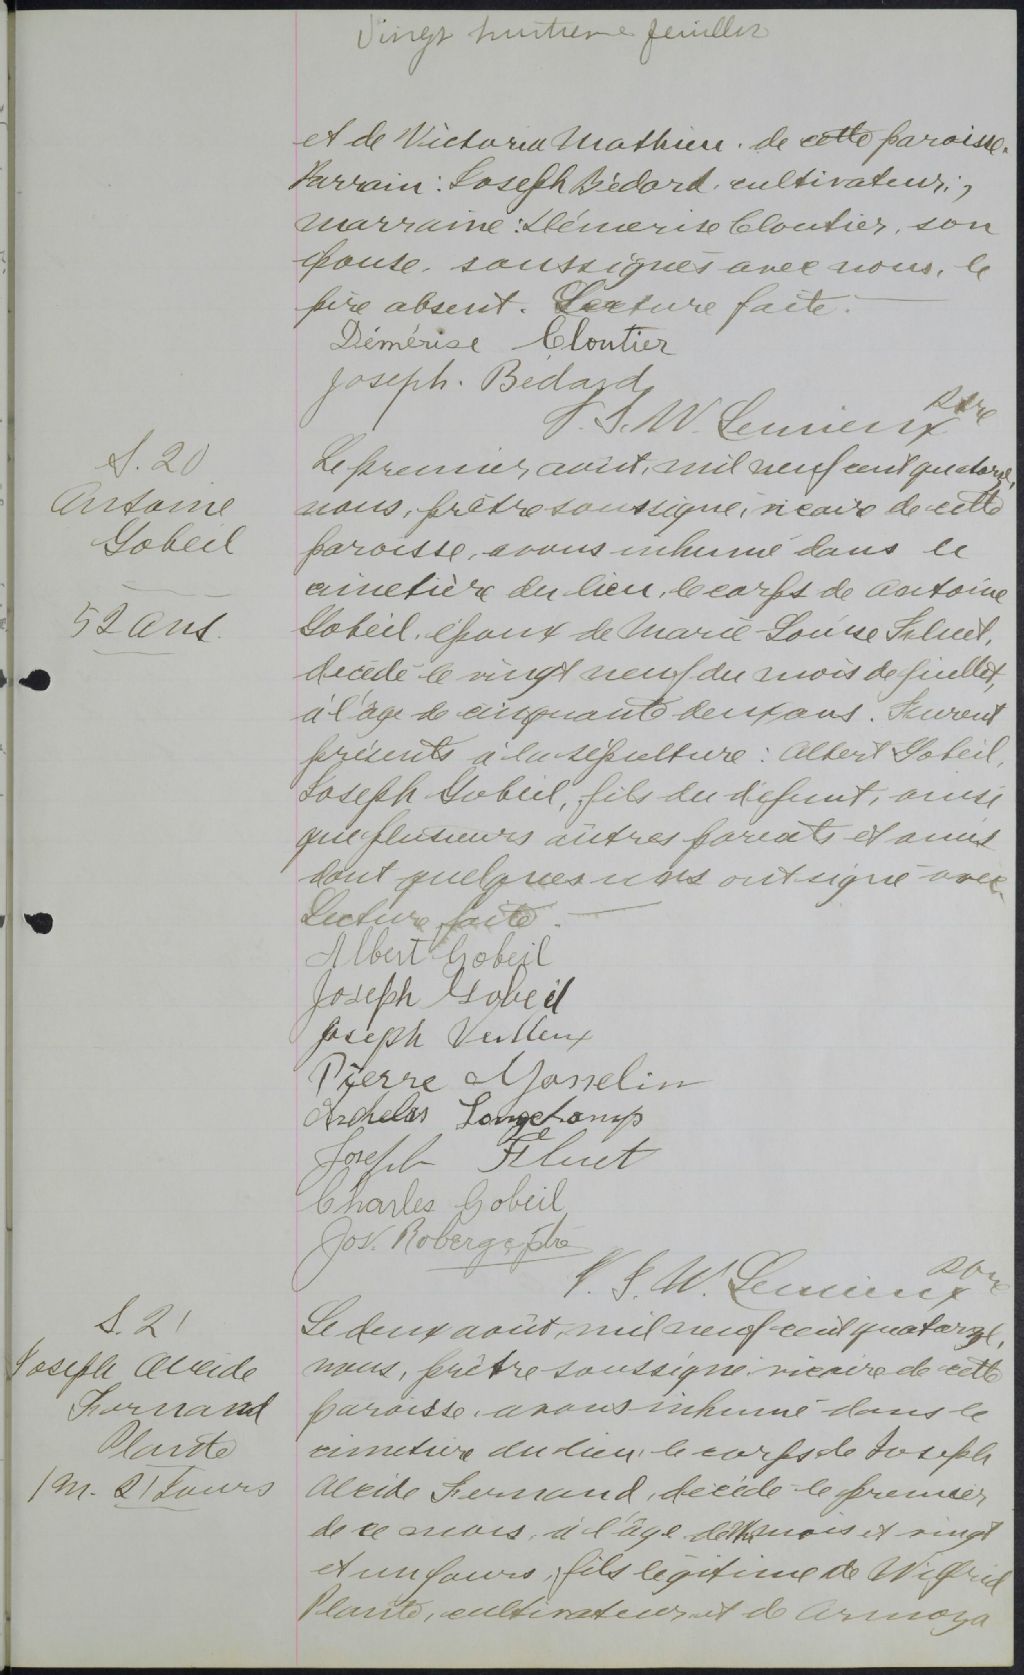 Vingt huitième feuillet
et de Victoria Mathieu. de cette paroisse.
Parrain: Joseph Bédard, cultivateur;
marraine: Démerise Cloutier, son
épouse, soussignés avec nous, le
père absent. Lecture faite.
Démérise Cloutier
Joseph. Bédard
J. S. W. Lemieux ptre
S. 20
Antoine
Gobeil
52 ans.
Le premier, août, mil neuf cent quatorze,
nous, prêtre soussigné, vicaire de cette
paroisse, avons inhumé dans le
cimetière du lieu, le corps de Antoine
Gobeil, époux de Marie-Louise Fluet,
décédé le vingt neuf du mois de juillet,
à l'âge de cinquante deux ans. Furent
présents à la sépulture: Albert Gobeil,
Joseph Gobeil, fils du défunt, ainsi
que plusieurs autres parents et amis
dont quelques uns ont signé avec.
Lecture faite.
Albert Gobeil
Joseph Gobeil
Joseph Veilleux
Pierre Gosselin
Archelas Longchamp
Joseph Fluet
Charles Gobeil
Jos. Roberge, ptre
J. S. W. Lemieux ptre
S. 21
Joseph Alcide
Fernand
Plante
1 m. 21 Jours
Le deux août, mil neuf cent quatorze,
nous, prêtre soussigné, vicaire de cette
paroisse, avons inhumé dans le
cimetière du lieu, le corps de Joseph
Alcide Fernand, décédé le premier
de ce mois, à l'âge de un mois et vingt
et un jours, fils légitime de Wilfrid
Plante, cultivateur et de Armoza